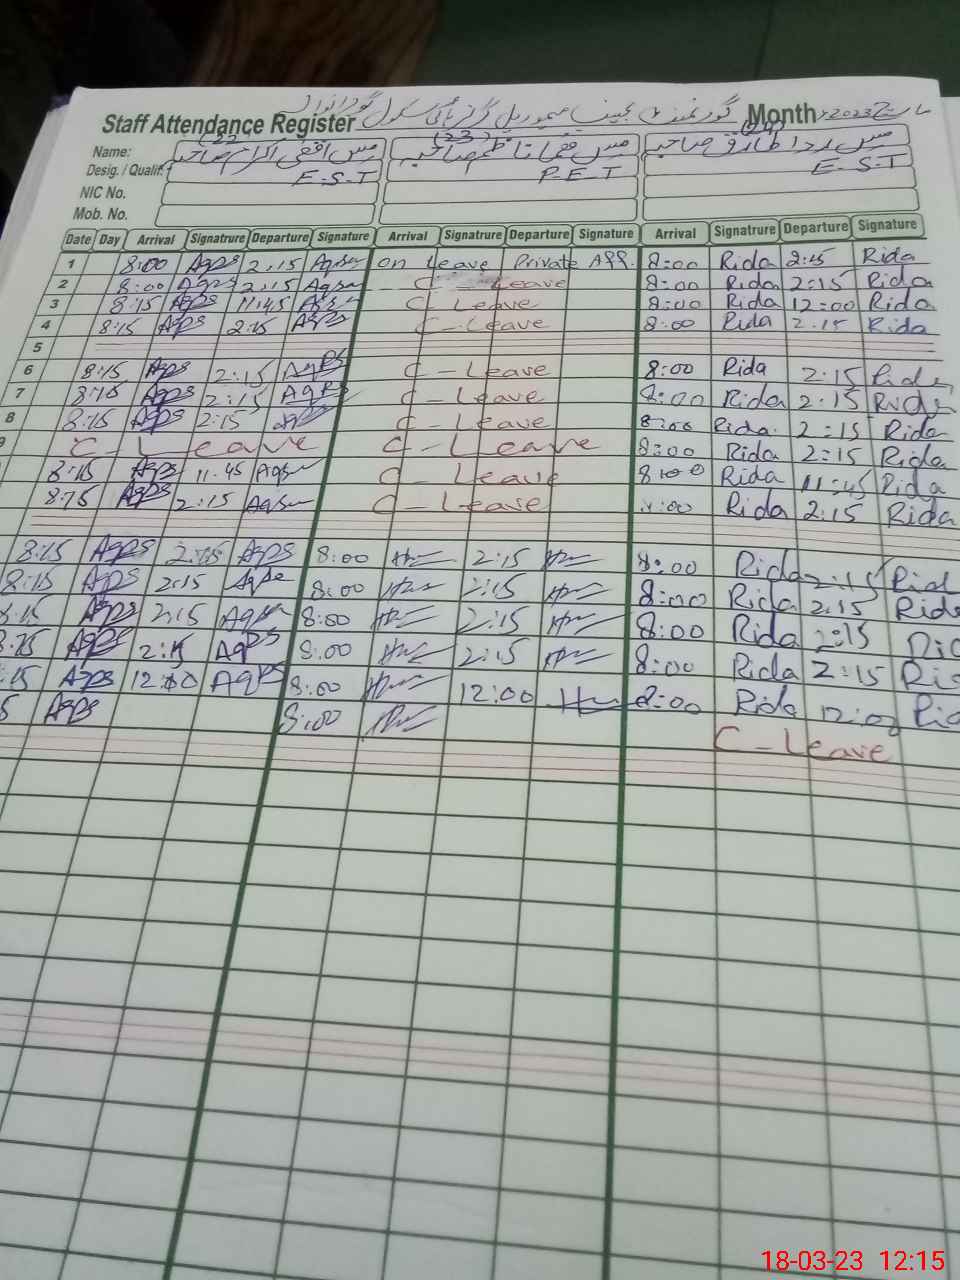 Staff Attendance Register گورنمنٹ میموریل گرلز ہائی سکول گوجرانوالہ Month مارچ 2023
(22) (23) (24)
Name: مس اقصیٰ اکرام صاحبہ مس ناظم صاحبہ مس ردا طارق صاحبہ
Desig. / Qualif. E-S-T P-E-T E-S-T
NIC No.
Mob. No.
Date Day Arrival Signatrure Departure Signature Arrival Signatrure Departure Signature Arrival Signatrure Departure Signature
1 8:00 Aqsa 2:15 Aqsa on Leave Private Aff. 8:00 Rida 2:15 Rida
2 8:00 Aqsa 2:15 Aqsa C - Leave 8:00 Rida 2:15 Rida
3 8:15 Aqsa 11:45 Aqsa C - Leave 8:00 Rida 12:00 Rida
4 8:15 Aqsa 2:15 Aqsa C - Leave 8:00 Rida 2:15 Rida
5
6 8:15 Aqsa 2:15 Aqsa C - Leave 8:00 Rida 2:15 Rida
7 8:15 Aqsa 2:15 Aqsa C - Leave 8:00 Rida 2:15 Rida
8 8:15 Aqsa 2:15 Aqsa C - Leave 8:00 Rida 2:15 Rida
9 C - Leave C - Leave 8:00 Rida 2:15 Rida
8:15 Aqsa 11:45 Aqsa C - Leave 8:00 Rida 11:45 Rida
8:15 Aqsa 2:15 Aqsa C - Leave 8:00 Rida 2:15 Rida
8:15 Aqsa 2:15 Aqsa 8:00 2:15 8:00 Rida 2:15 Rida
8:15 Aqsa 2:15 Aqsa 8:00 2:15 8:00 Rida 2:15 Rida
8:15 Aqsa 2:15 Aqsa 8:00 2:15 8:00 Rida 2:15
8:15 Aqsa 2:15 Aqsa 8:00 2:15 8:00 Rida 2:15
:15 Aqsa 12:00 Aqsa 8:00 12:00 8:00 Rida 12:00
5 Aqsa 8:00 C - Leave
18-03-23 12:15